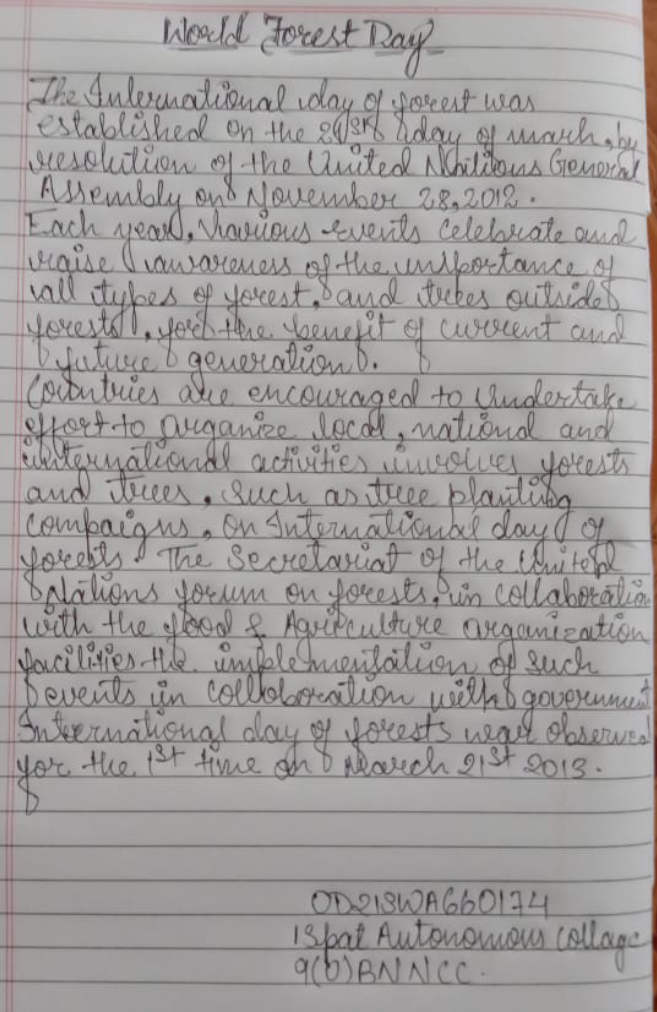 World Forest Day
The International day of forest was
established on the 21st day of march, by
resolution of the United Nations General
Assembly on November 28, 2012.
Each year, various events celebrate and
raise awareness of the importance of
all types of forest, and trees outside
forests, for the benefit of current and
future generation.
Countries are encouraged to undertake
effort to organize local, national and
international activities involves forests
and trees, such as tree planting
compaigns, on International day of
forests. The Secretariat of the United
Nations forum on forests, in collaboration
with the food & Agriculture organization
facilities the implementation of such
events in collaboration with government
International day of forests was observed
for the 1st time on March 21st 2013.
OD21SWA660174
Ispat Autonomous Collage
9(O)BNNCC.